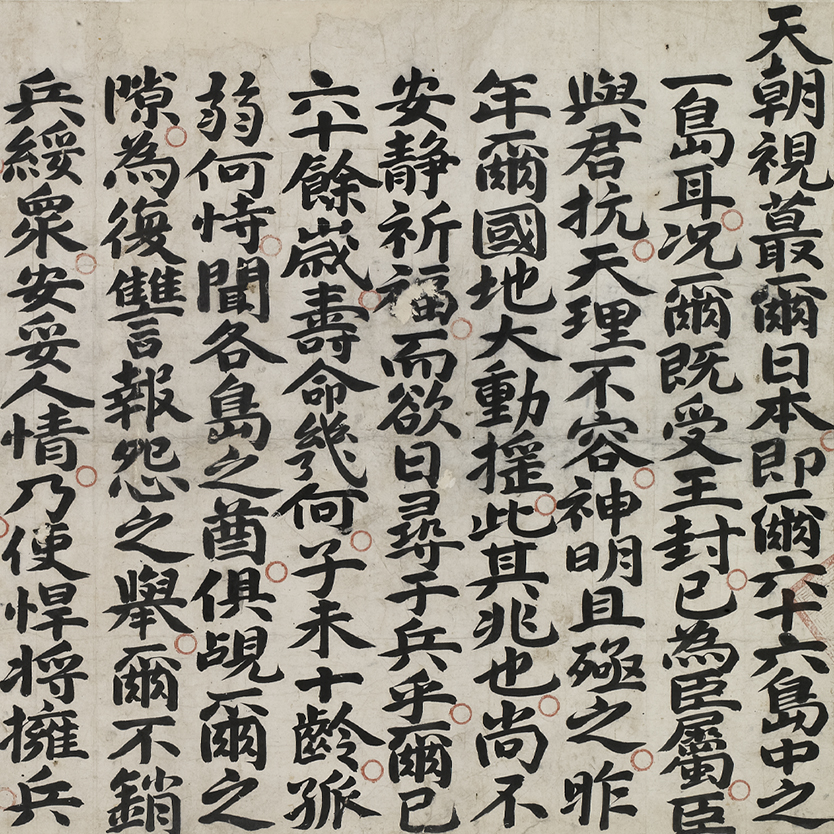 天朝視蕞爾日本即爾六十六島中之
一島耳况爾既受王封已為臣屬臣
與君抗天理不容神明且殛之昨
年爾國地大動搖此其兆也尚不
安静祈福而欲日尋于兵乎爾已
六十餘歲壽命幾何子未十齡孤
弱何恃聞各島之酋俱覘爾之
隙為復讐報怨之舉爾不銷
兵綏衆安妥人情乃使悍将擁兵